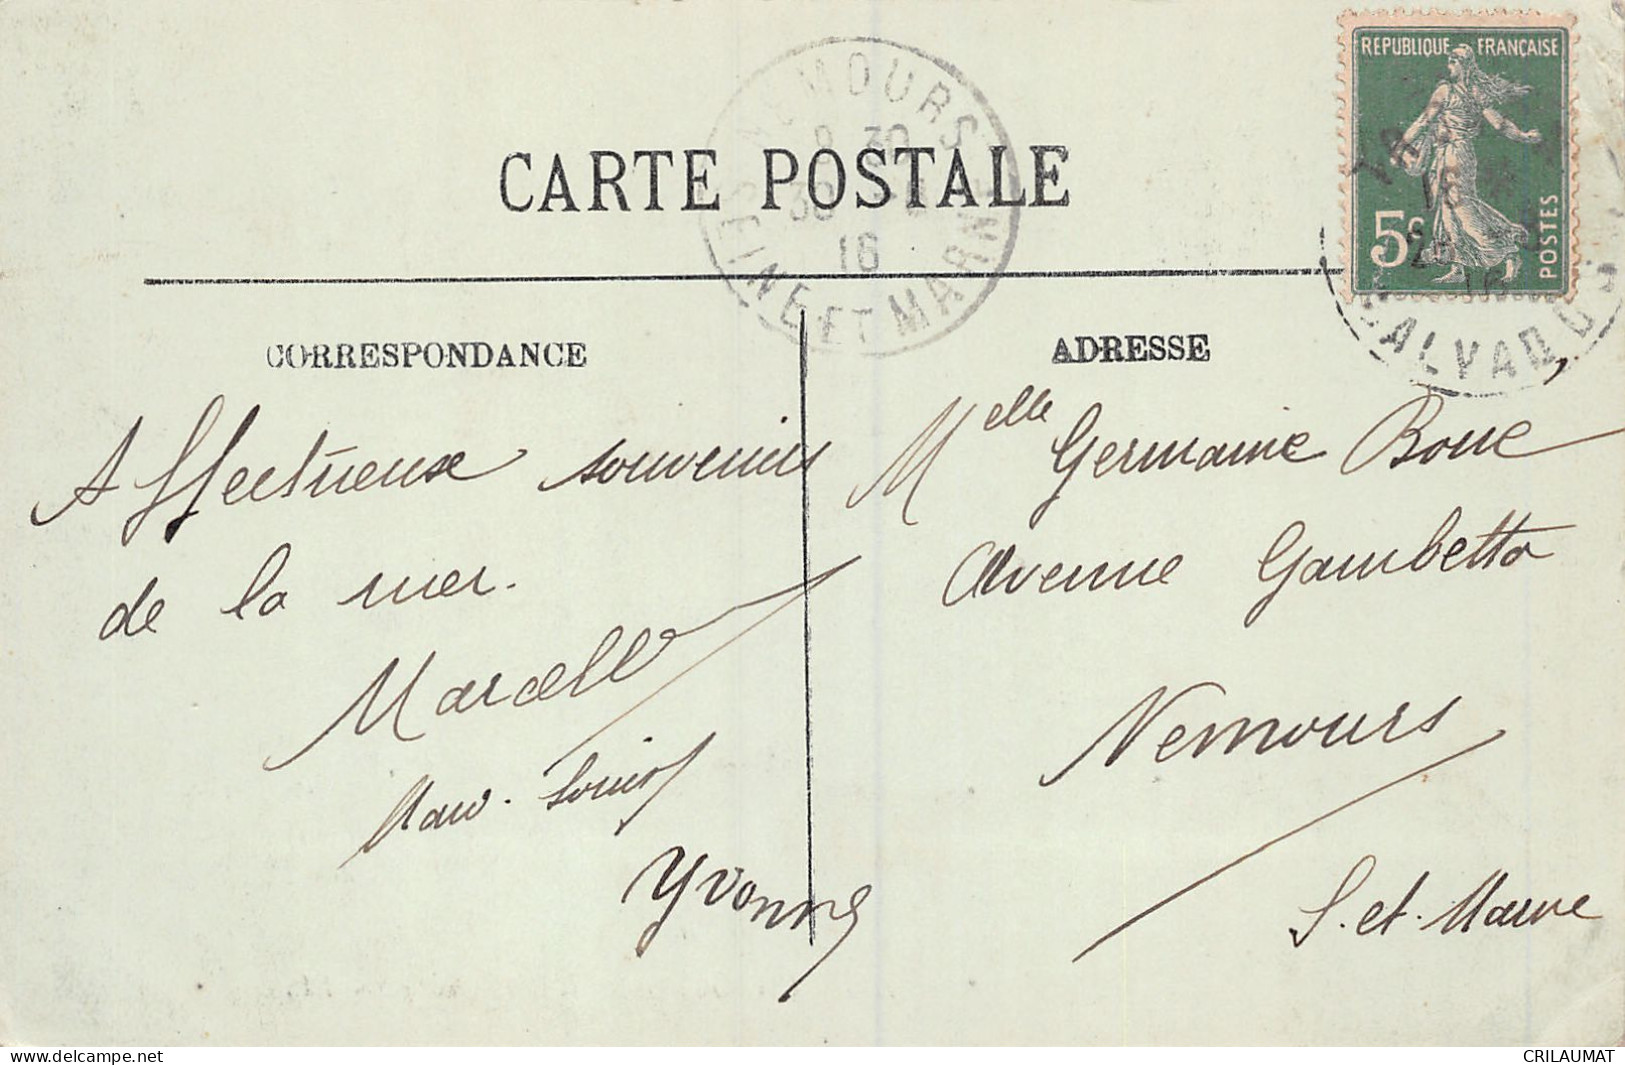 CARTE POSTALE
NEMOURS
8 30
30
16
SEINE ET MARNE
REPUBLIQUE FRANÇAISE
5c
POSTES
16
16
CALVADOS
CORRESPONDANCE
ADRESSE
Affectueux souvenirs
de la mer.
Marcelle
Louis
Yvonne
Melle Germaine Boue
Avenue Gambetta
Nemours
S. et. Marne
www.delcampe.net
CRILAUMAT